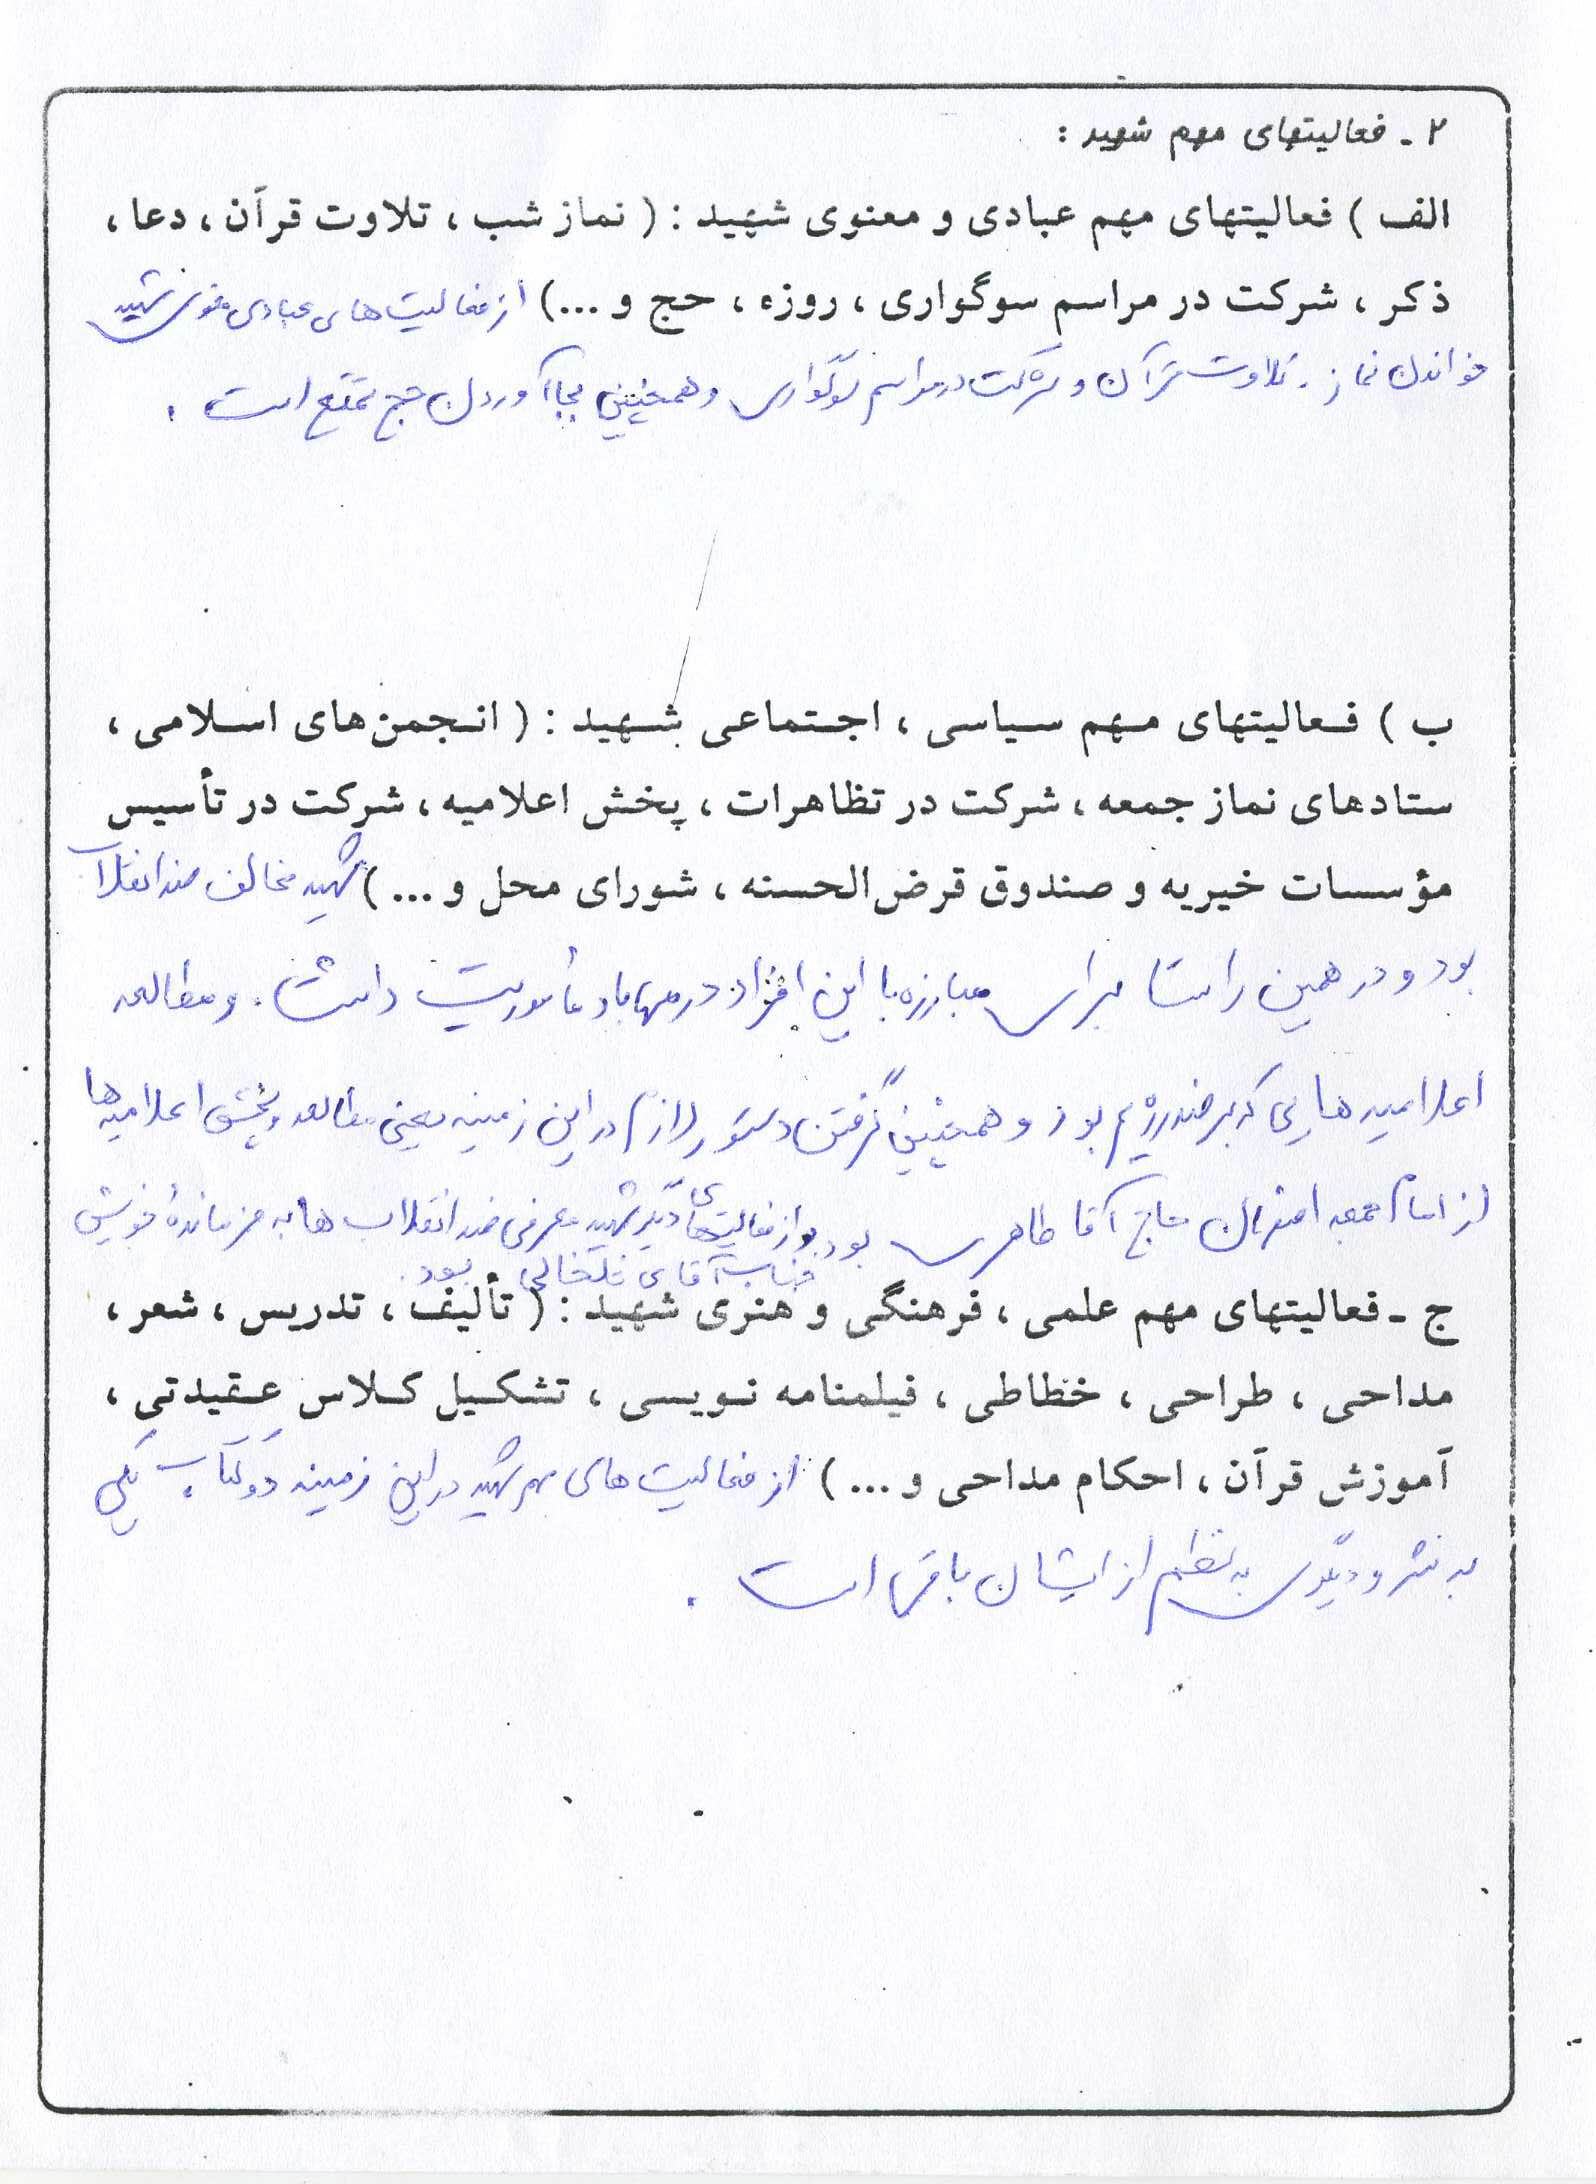 ۲ - فعالیتهای مهم شهید :
الف ) فعالیتهای مهم عبادی و معنوی شهید : ( نماز شب ، تلاوت قرآن ، دعا ،
ذکر ، شرکت در مراسم سوگواری ، روزه ، حج و ...) از فعالیت های عبادی معنوی شهید
خواندن نماز . تلاوت قرآن و شرکت در مراسم سوگواری و همچنین بجا آوردن حج تمتع است .
ب ) فعالیتهای مهم سیاسی ، اجتماعی شهید : ( انجمن‌های اسلامی ،
ستادهای نماز جمعه ، شرکت در تظاهرات ، پخش اعلامیه ، شرکت در تأسیس
مؤسسات خیریه و صندوق قرض‌الحسنه ، شورای محل و ... ) شهید مخالف ضد انقلاب
بود و در همین راستا برای مبارزه با این افراد در مهاباد مأموریت داشت . و مطالعه
اعلامیه هایی که بر ضد رژیم بود و همچنین گرفتن دستور لازم در این زمینه یعنی مطالعه و پخش اعلامیه ها
از امام جمعه اصفهان حاج آقا طاهری بود و از فعالیتهای دیگر شهید معرفی ضد انقلاب ها به فرمانده خویش
جناب آقای خلخالی بود .
ج - فعالیتهای مهم علمی ، فرهنگی و هنری شهید : ( تألیف ، تدریس ، شعر ،
مداحی ، طراحی ، خطاطی ، فیلمنامه نویسی ، تشکیل کلاس عقیدتی ،
آموزش قرآن ، احکام مداحی و ... ) از فعالیت های مهم شهید در این زمینه دو کتاب یکی
به نثر و دیگری به نظم از ایشان باقی است .